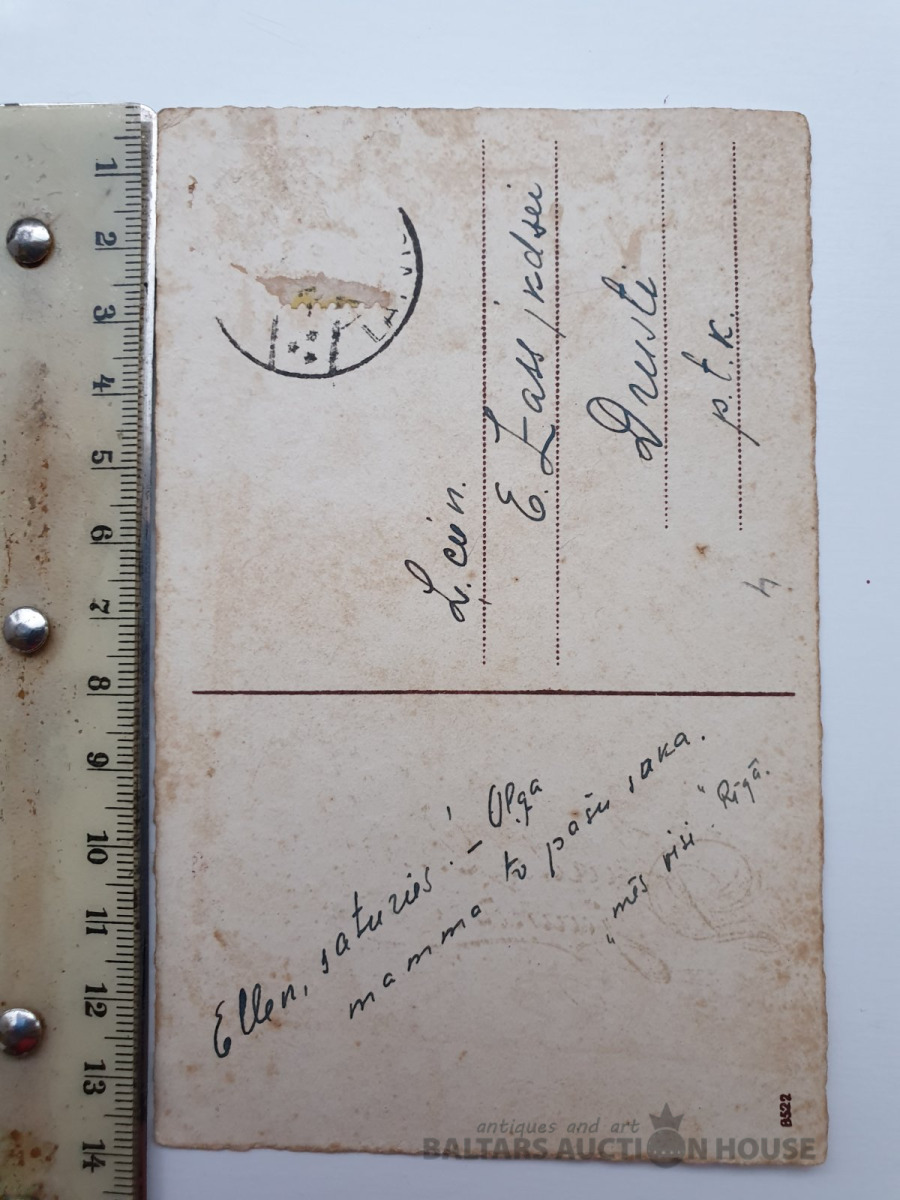 Ellen, saturies! – Olga
mamma to pašu saka.
"mēs visi" Rīgā.
L. cien.
E. Lass jkdzei
Drusti
p. t. k.
LATVI
B522
1
2
3
4
5
6
7
8
9
10
11
12
13
14
antiques and art
BALTARS AUCTION HOUSE